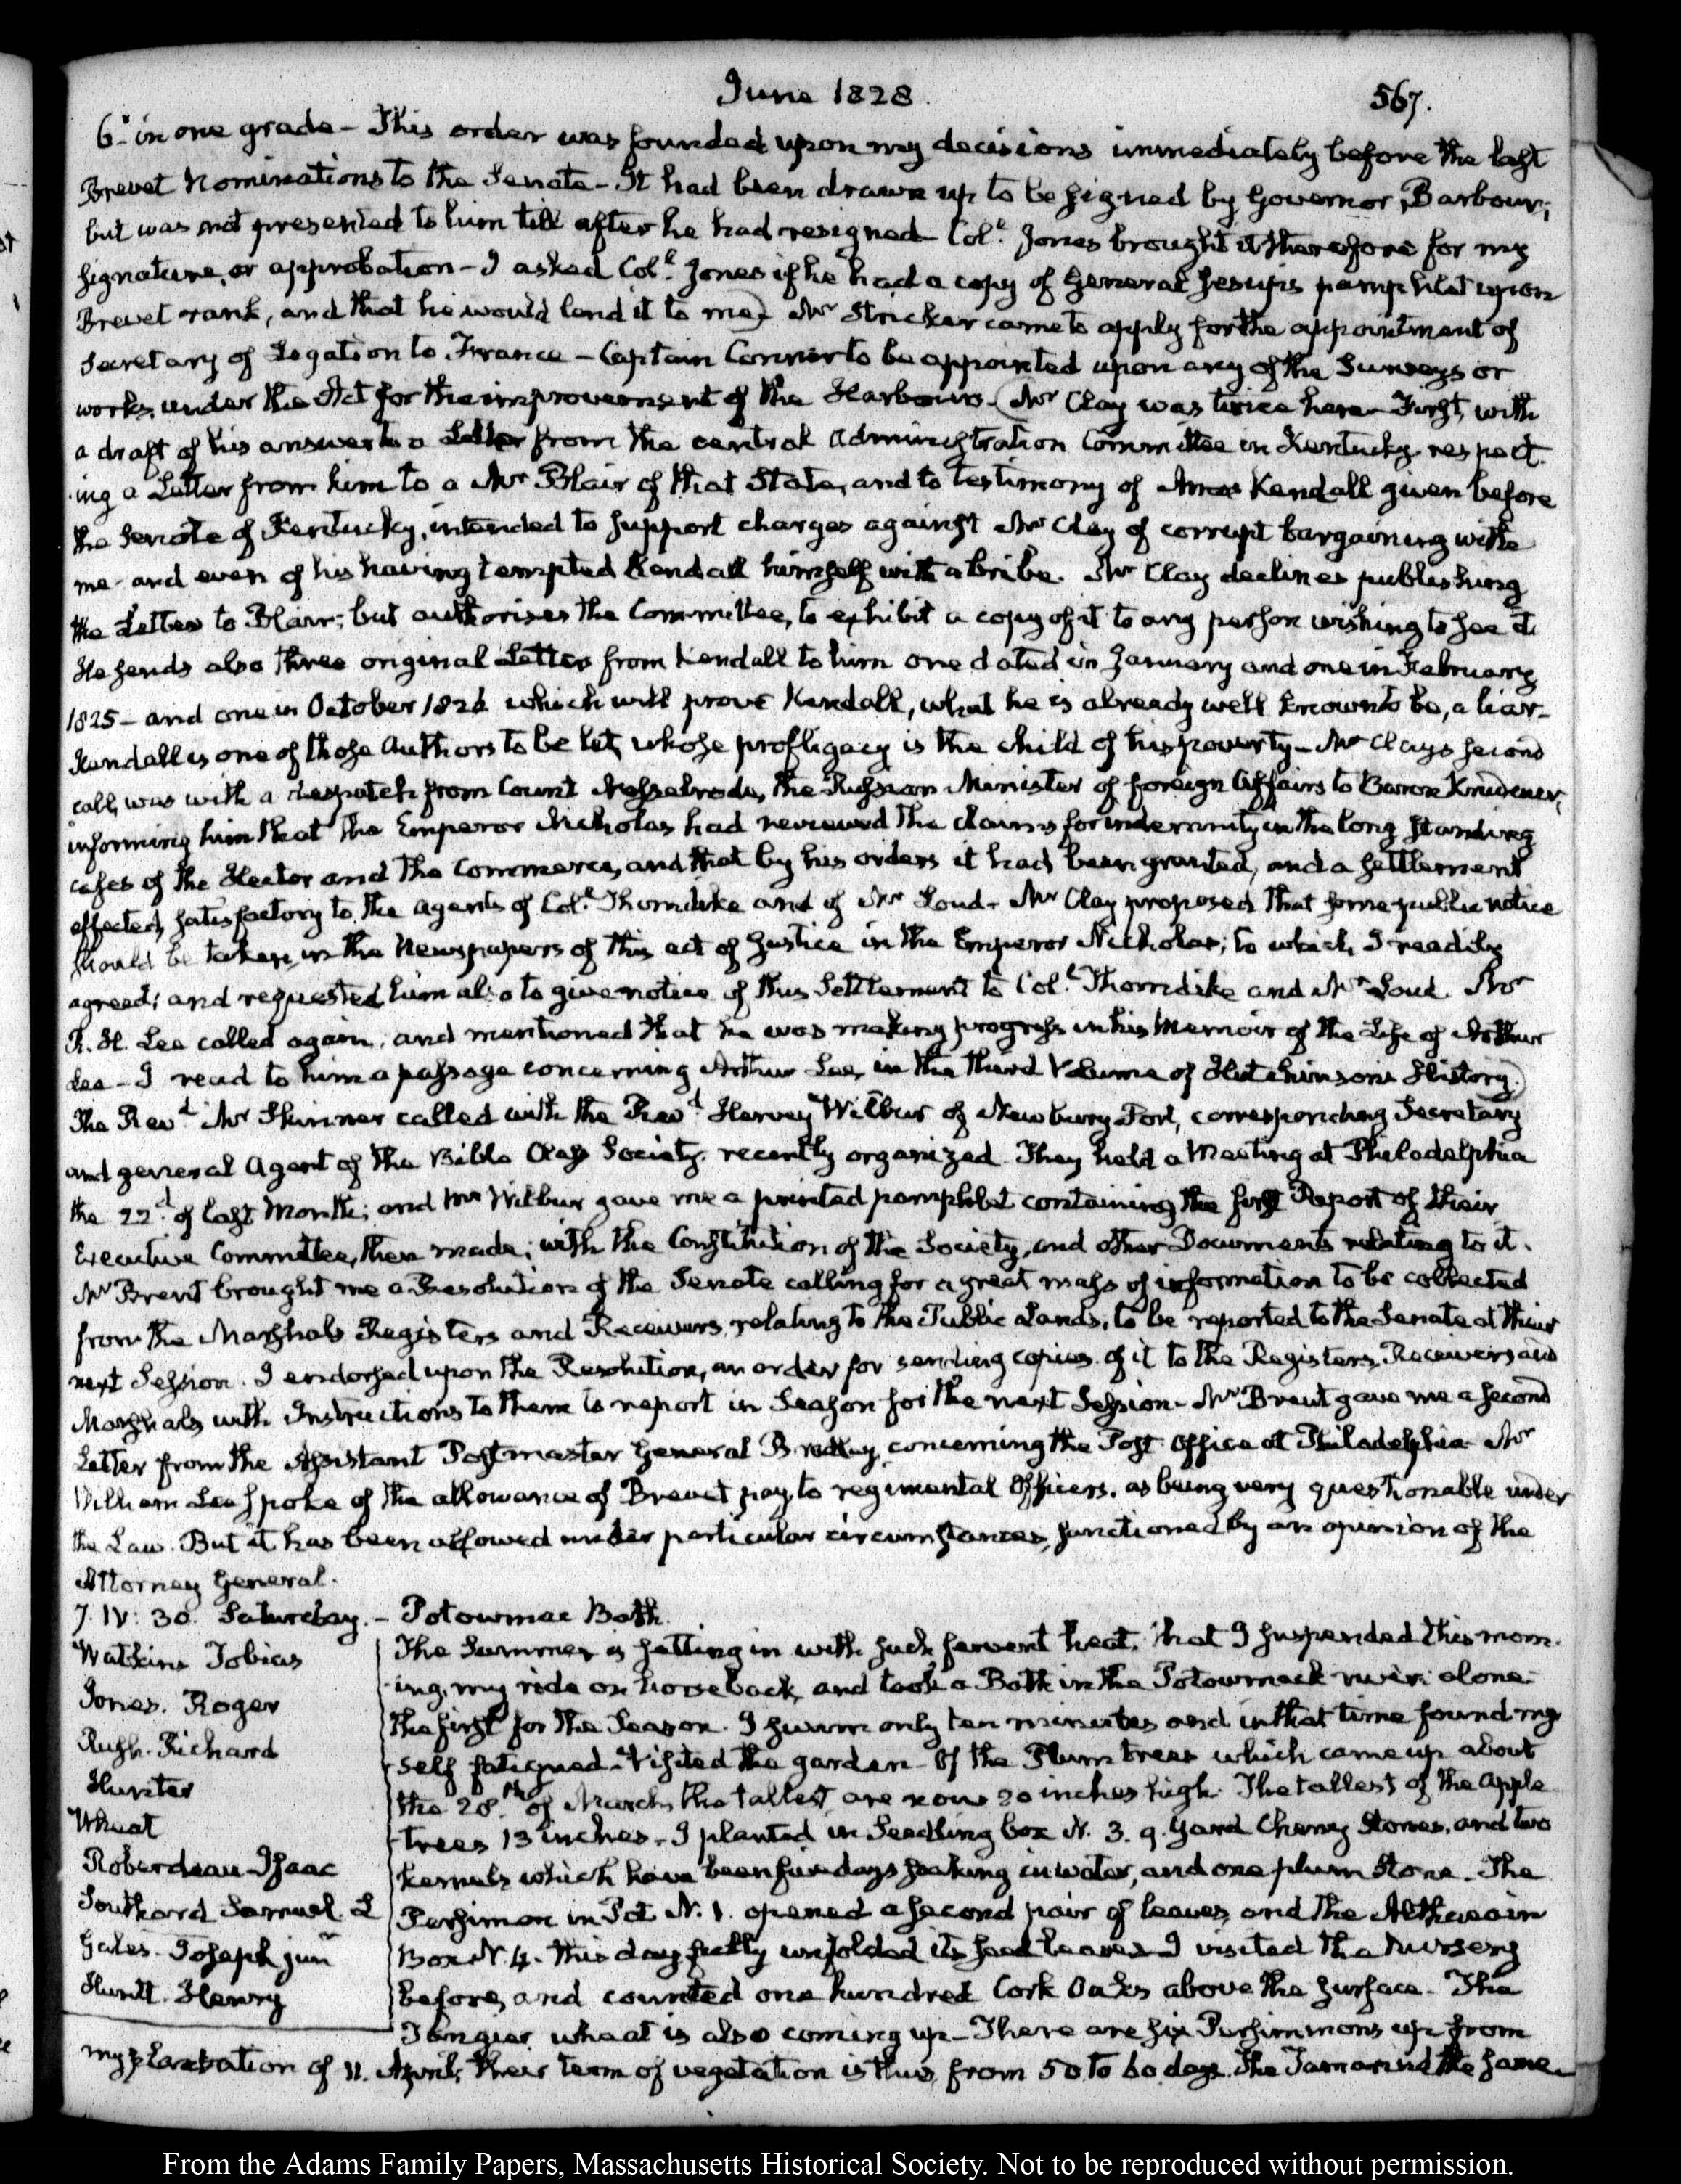 June 1828. 567.
6. in one grade - This order was founded upon my decisions immediately before the last
Brevet Nominations to the Senate - It had been drawn up to be signed by Governor Barbour;
but was not presented to him till after he had resigned Col.l Jones brought it therefore for my
signature, or approbation - I asked Col.l Jones if he had a copy of General Jesup's pamphlet upon
Brevet rank, and that he would lend it to me) Mr Stricker came to apply for the appointment of
Secretary of Legation to France - Captain Connor to be appointed upon any of the Surveys or
works, under the Act for the improvement of the Harbours. (Mr Clay was twice here - First, with
a draft of his answer to a Letter from the central administration Committee in Kentucky respect-
ing a Letter from him to a Mr Blair of that State, and to testimony of Amos Kendall given before
the Senate of Kentucky, intended to support charges against Mr Clay of corrupt bargaining with
me - and even of his having tempted Kendall himself with a bribe. Mr Clay declines publishing
the Letter to Blair; but authorises the Committee, to exhibit a copy of it to any person wishing to see it
He sends also three original Letters from Kendall to him one dated in January and one in February
1825 - and one in October 182 which will prove Kendall, what he is already well known to be, a liar -
Kendall is one of those Authors to be let, whose profligacy is the child of his poverty - Mr Clays second
call, was with a despatch from Count Nesselrode, the Russian Minister of foreign Affairs to Baron Krudener,
informing him that the Emperor Nicholas had reviewed the claims for indemnity in the long standing
cases of the Hector and the Commerce, and that by his orders it had been granted, and a settlement
effected, satisfactory to the agents of Col.l Thorndike and of Mr Loud - Mr Clay proposed that some public notice
should be taken, in the Newspapers of this act of Justice in the Emperor Nicholas; to which I readily
agreed; and requested him also to give notice of this Settlement to Col.l Thorndike and Mr Loud. Mr
R. H. Lee called again, and mentioned that he was making progress in his Memoir of the Life of Arthur
Lee - I read to him a passage concerning Arthur Lee, in the third Volume of Hutchinson's History.)
The Revd Mr Skinner called with the Revd Hervey Wilbur of Newbury Port, corresponding Secretary
and general Agent of the Bible Class Society, recently organized. They held a Meeting at Philadelphia
the 22d of last Month; and Mr Wilbur gave me a printed pamphlet containing the first Report of their
Executive Committee, then made; with the Constitution of the Society, and other Documents relating to it.
Mr Brent brought me a Resolution of the Senate calling for a great mass of information to be collected
from the Marshals Registers and Receivers, relating to the Public Lands, to be reported to the Senate at their
next Session. I endorsed upon the Resolution, an order for sending copies of it to the Registers, Receivers and
Marshals with Instructions to them to report in Season for the next Session - Mr Brent gave me a second
Letter from the Assistant Postmaster General Bradley, concerning the Post Office at Philadelphia Mr
William Lee spoke of the allowance of Brevet pay, to regimental Officers, as being very questionable under
the Law. But it has been allowed under particular circumstances, sanctioned by an opinion of the
Attorney General.
7. IV: 30. Saturday. - Potowmac Bath.
Watkins Tobias
Jones. Roger
Rush. Richard
Hunter
Wheat
Roberdeau Isaac
Southard Samuel. L
Gales. Joseph junr
Huntt. Henry
The Summer is setting in with such fervent heat, that I suspended this morn-
ing, my ride on horseback, and took a Bath in the Potowmack river: alone.
The first for the Season. I swum only ten minutes and in that time found my
self fatigued - Visited the garden - Of the Plum trees which came up about
the 28th of March, the tallest are now 20 inches high. The tallest of the apple
trees 13 inches. I planted in Seedling box N. 3. 9. Gard Cherry Stones, and two
kernels which have been five days soaking in water, and one plum Stone. The
Persimon in Pot N. 1. opened a second pair of leaves, and the Althaea in
Box N. 4. this day fully unfolded its seed leaves I visited the nursery
before, and counted one hundred Cork Oaks above the surface. The
Tangier wheat is also coming up - There are six Persimmons up from
my plantation of 11. April; their term of vegetation is thus from 50 to 60 days. The Tamarind the same.
From the Adams Family Papers, Massachusetts Historical Society. Not to be reproduced without permission.